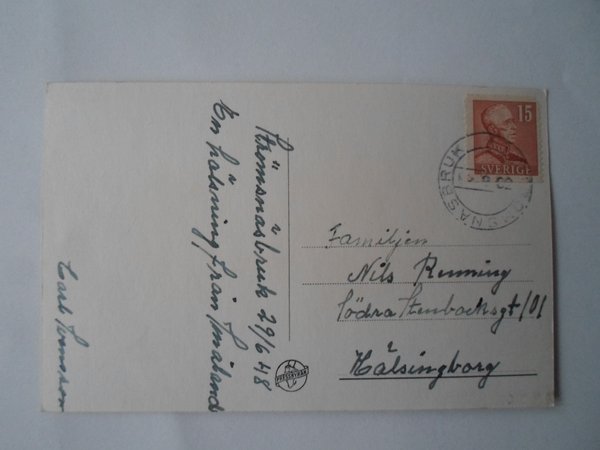 Strömsnäsbruk 29/6 48
En hälsning från Småland
Carl
15
SVERIGE
SNÄSBRUK
Familjen
Nils Renning
Södra Stenbocksgt/01
Hälsingborg